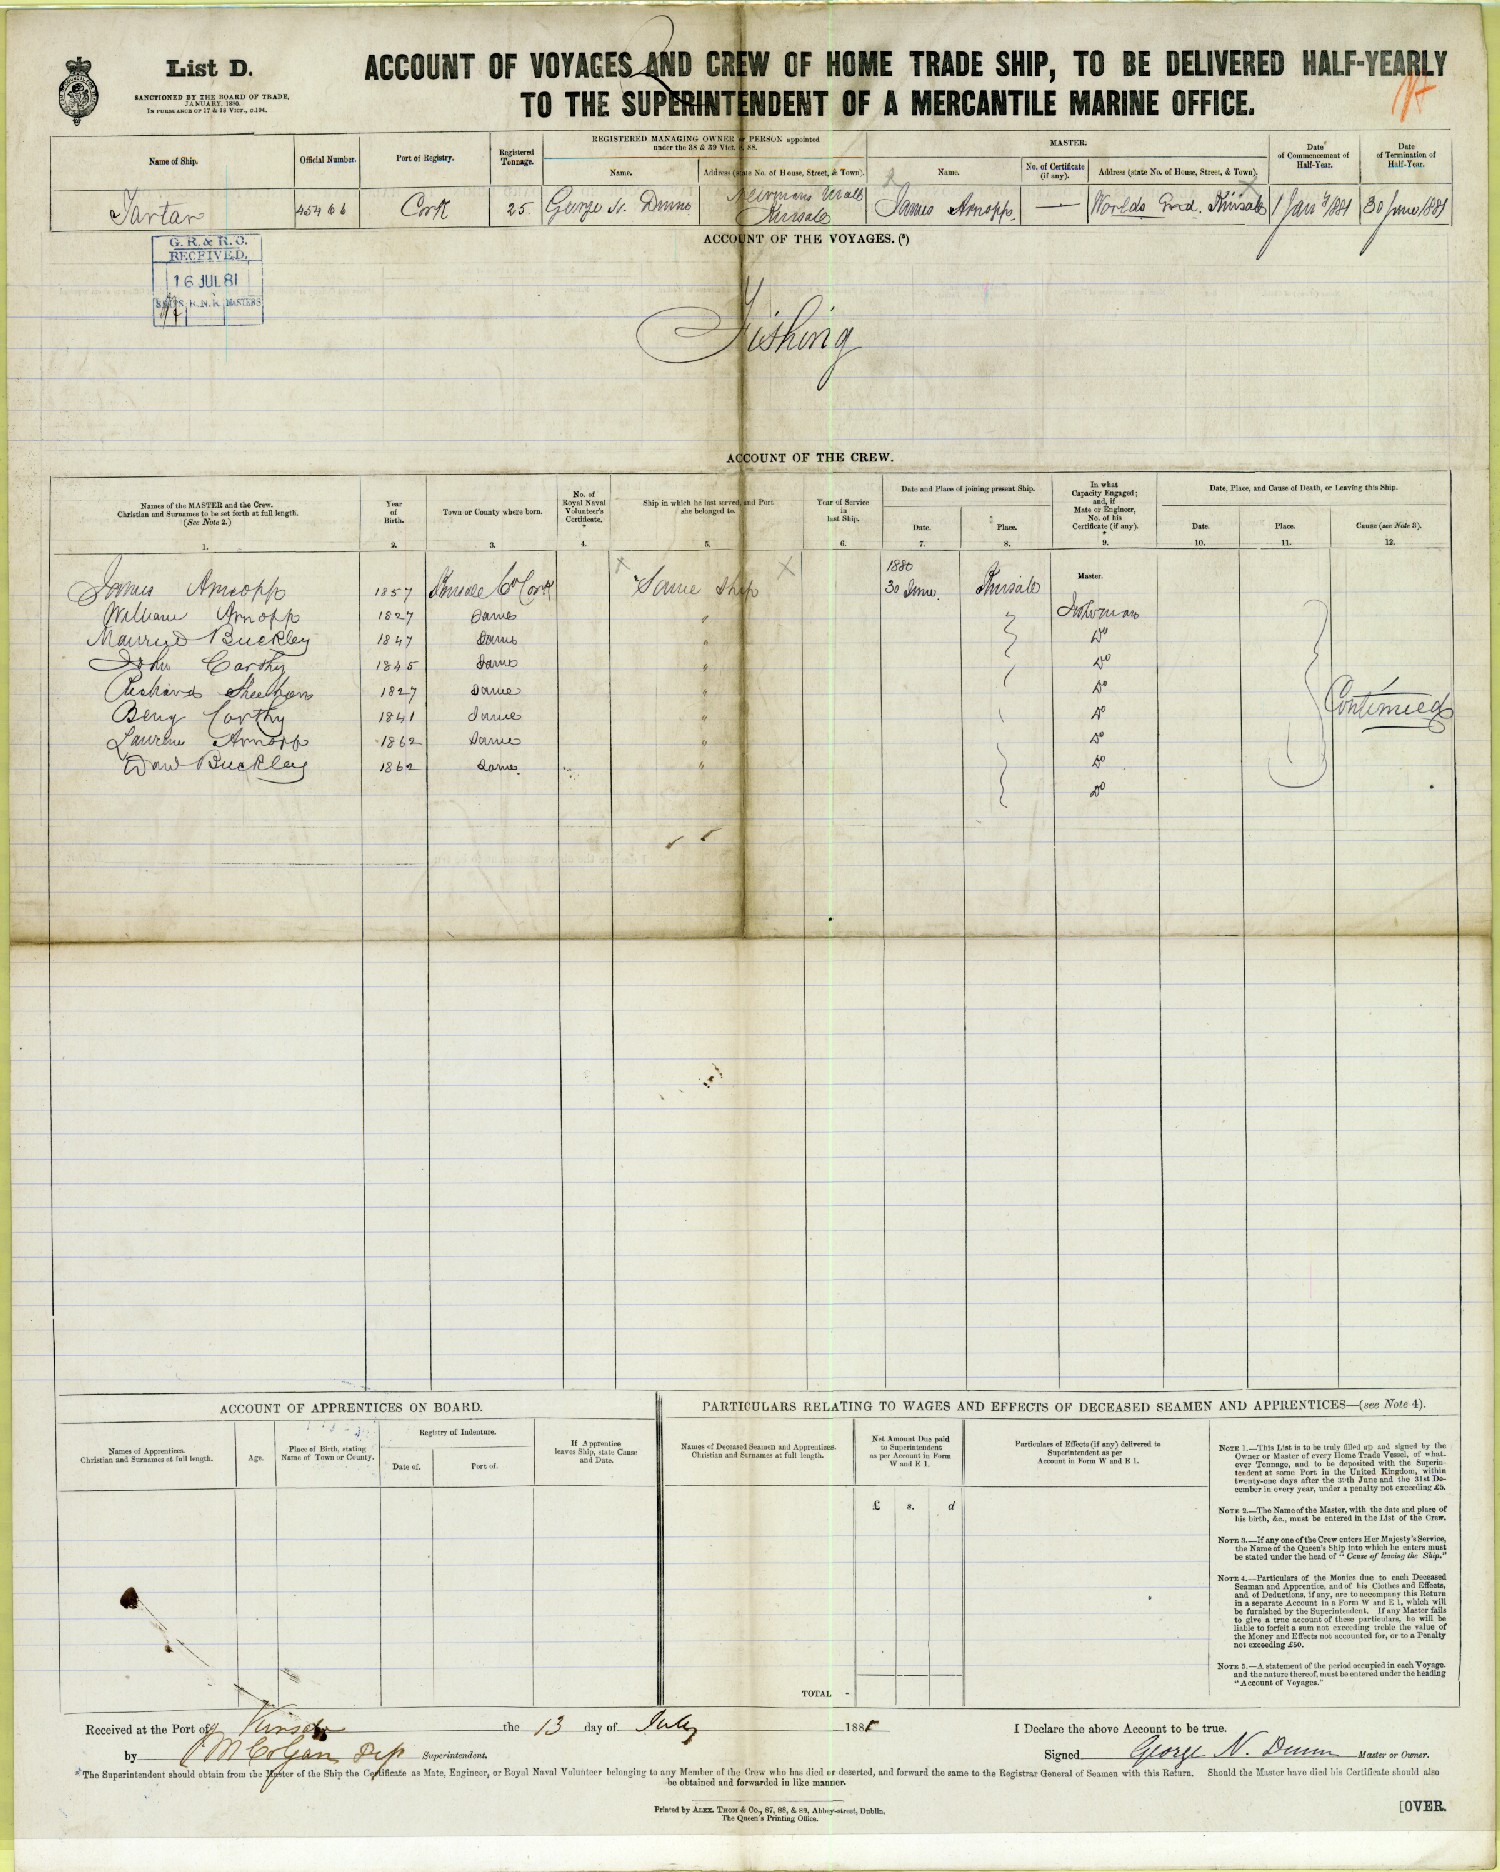 List D.
SANCTIONED BY THE BOARD OF TRADE,
JANUARY, 1880.
IN PURSUANCE OF 17 & 18 VICT., c. 104.
ACCOUNT OF VOYAGES AND CREW OF HOME TRADE SHIP, TO BE DELIVERED HALF-YEARLY
TO THE SUPERINTENDENT OF A MERCANTILE MARINE OFFICE.
Name of Ship.
Official Number.
Port of Registry.
Registered Tonnage.
REGISTERED MANAGING OWNER or PERSON appointed
under the 38 & 39 Vict. c. 88.
Name.
Address (state No. of House, Street, & Town).
MASTER.
Name.
No. of Certificate (if any).
Address (state No. of House, Street, & Town).
Date of Commencement of Half-Year.
Date of Termination of Half-Year.
Tartar 45466 Cork 25 George N. Dunn Kinsale James Arnopp — Worlds End. Kinsale 1 Jany 1881 30 June 1881
G. R. & R. O.
RECEIVED.
16 JUL 81
SHIPS R.N.R. MASTERS
ACCOUNT OF THE VOYAGES.(*)
Fishing
ACCOUNT OF THE CREW.
Names of the MASTER and the Crew.
Christian and Surnames to be set forth at full length.
(See Note 2.)
Year of Birth.
Town or County where born.
No. of Royal Naval Volunteer's Certificate.
Ship in which he last served, and Port she belonged to.
Year of Service in last Ship.
Date and Place of joining present Ship.
Date.
Place.
In what Capacity Engaged; and, if Mate or Engineer, No. of his Certificate (if any).
Date, Place, and Cause of Death, or Leaving this Ship.
Date.
Place.
Cause (see Note 3).
1. 2. 3. 4. 5. 6. 7. 8. 9. 10. 11. 12.
1880
James Arnopp 1857 Kinsale Co Cork Same Ship 30 June. Kinsale Master.
William Arnopp 1827 Same " Fisherman
Maurice Buckley 1847 Same " Do
John Carthy 1845 Same " Do
Richard Sheehan 1827 Same " Do
Benj Carthy 1841 Same " Do
Continued
Laurence Arnopp 1862 Same " Do
Danl Buckley 1862 Same. " Do
Do
ACCOUNT OF APPRENTICES ON BOARD.
Names of Apprentices.
Christian and Surnames at full length.
Age.
Place of Birth, stating Name of Town or County.
Registry of Indenture.
Date of.
Port of.
If Apprentice leaves Ship, state Cause and Date.
PARTICULARS RELATING TO WAGES AND EFFECTS OF DECEASED SEAMEN AND APPRENTICES—(see Note 4).
Names of Deceased Seamen and Apprentices.
Christian and Surnames at full length.
Net Amount Due paid to Superintendent as per Account in Form W and E 1.
£ s. d
Particulars of Effects (if any) delivered to Superintendent as per Account in Form W and E 1.
TOTAL -
NOTE 1.—This List is to be truly filled up and signed by the
Owner or Master of every Home Trade Vessel, of what-
ever Tonnage, and to be deposited with the Superin-
tendent at some Port in the United Kingdom, within
twenty-one days after the 30th June and the 31st De-
cember in every year, under a penalty not exceeding £5.
NOTE 2.—The Name of the Master, with the date and place of
his birth, &c., must be entered in the List of the Crew.
NOTE 3.—If any one of the Crew enters Her Majesty's Service,
the Name of the Queen's Ship into which he enters must
be stated under the head of "Cause of leaving the Ship."
NOTE 4.—Particulars of the Monies due to each Deceased
Seaman and Apprentice, and of his Clothes and Effects,
and of Deductions, if any, are to accompany this Return
in a separate Account in a Form W and E 1, which will
be furnished by the Superintendent. If any Master fails
to give a true account of these particulars, he will be
liable to forfeit a sum not exceeding treble the value of
the Money and Effects not accounted for, or to a Penalty
not exceeding £50.
NOTE 5.—A statement of the period occupied in each Voyage,
and the nature thereof, must be entered under the heading
"Account of Voyages."
Received at the Port of Kinsale the 13 day of July 1881
by McColgan Dep Superintendent.
I Declare the above Account to be true.
Signed George N. Dunn Master or Owner.
*The Superintendent should obtain from the Master of the Ship the Certificate as Mate, Engineer, or Royal Naval Volunteer belonging to any Member of the Crew who has died or deserted, and forward the same to the Registrar General of Seamen with this Return. Should the Master have died his Certificate should also
be obtained and forwarded in like manner.
Printed by ALEX. THOM & Co., 87, 88, & 89, Abbey-street, Dublin.
The Queen's Printing Office.
[OVER.